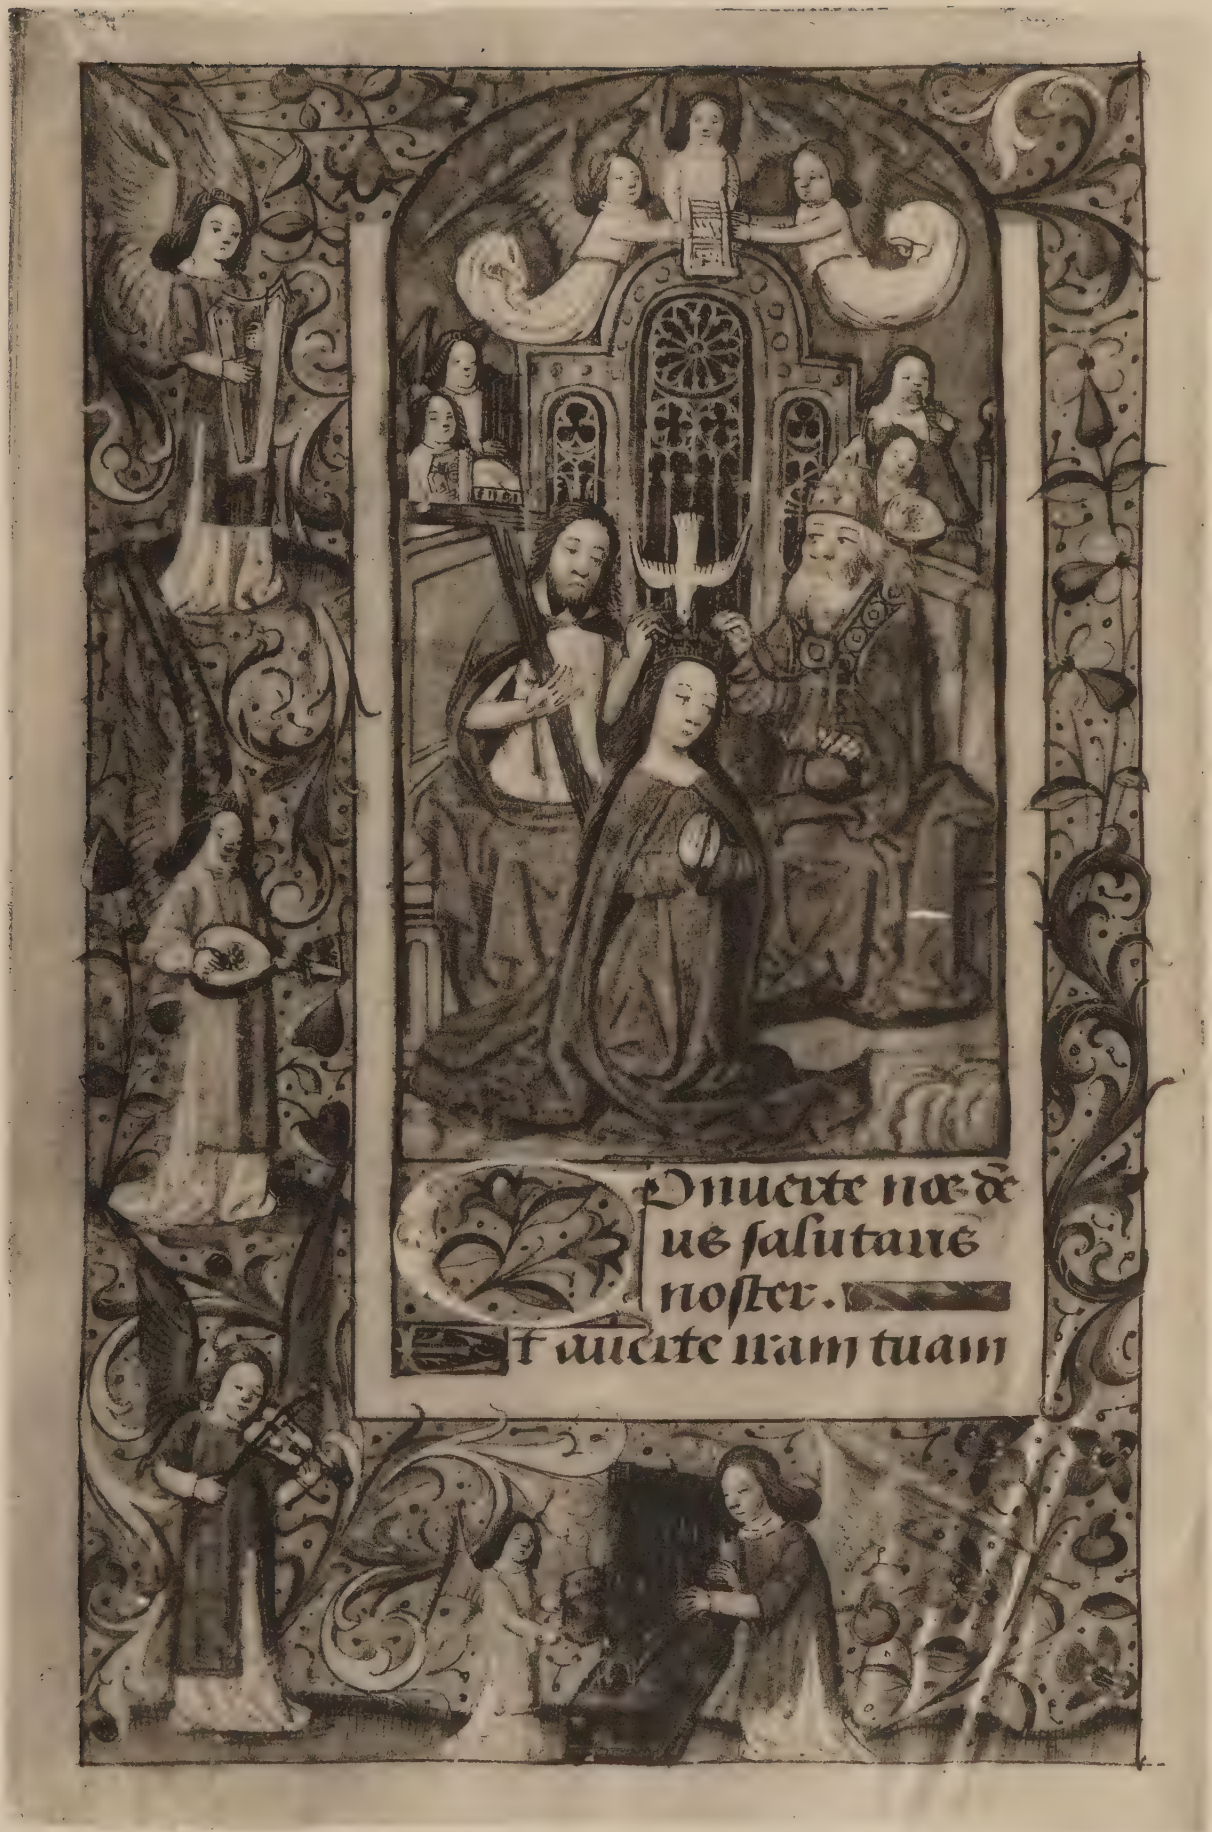 Conuerte nos de
us salutaris
noster.
Et auerte iram tuam